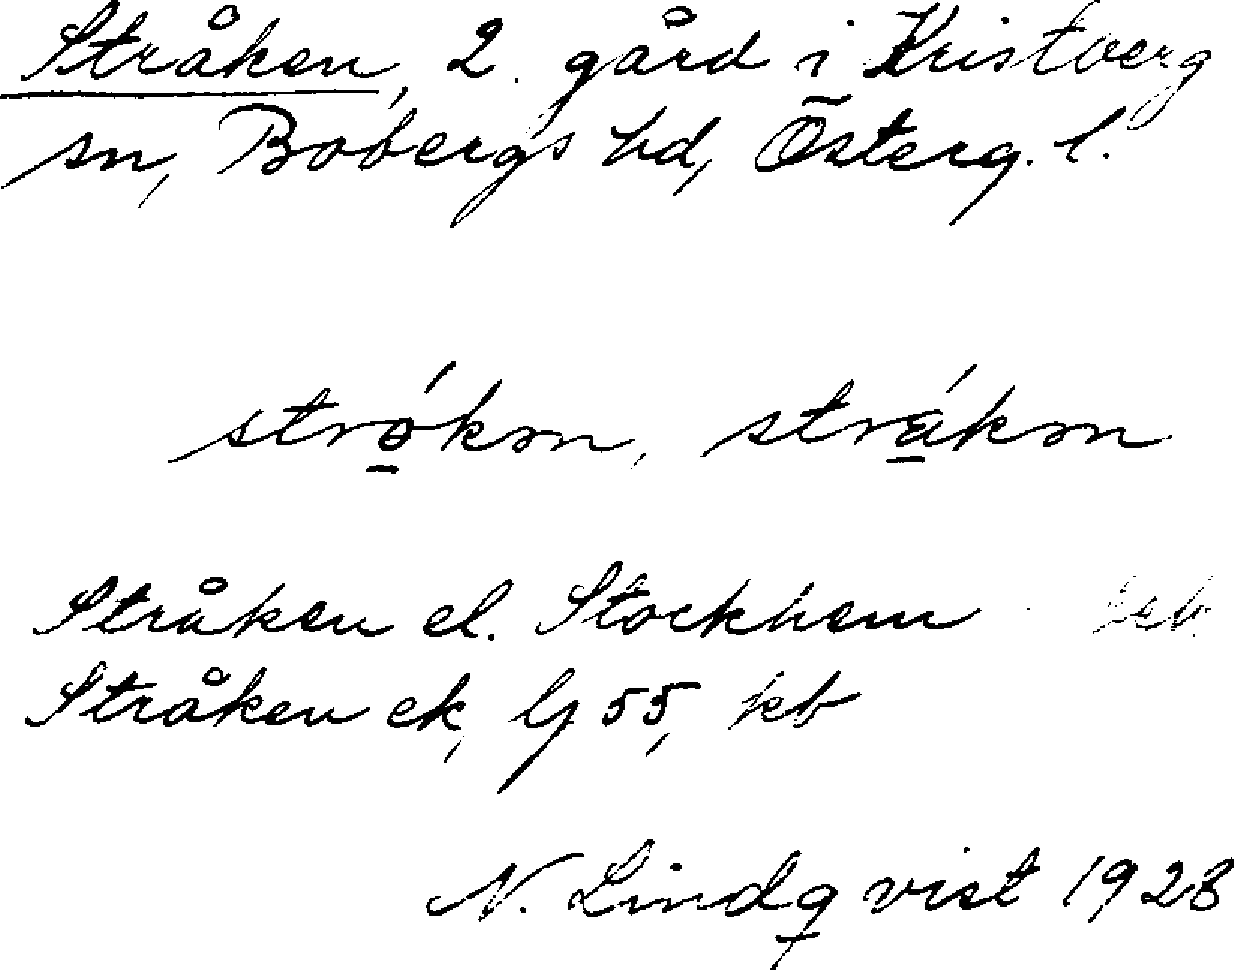 Stråken, 2. gård i Kristberg
sn, Bobergs hd, Österg. l.
strǫ́kən, strą́kən
Stråken el. Stockhem
Stråken ek, Gj 55, kb
N. Lindqvist 1928